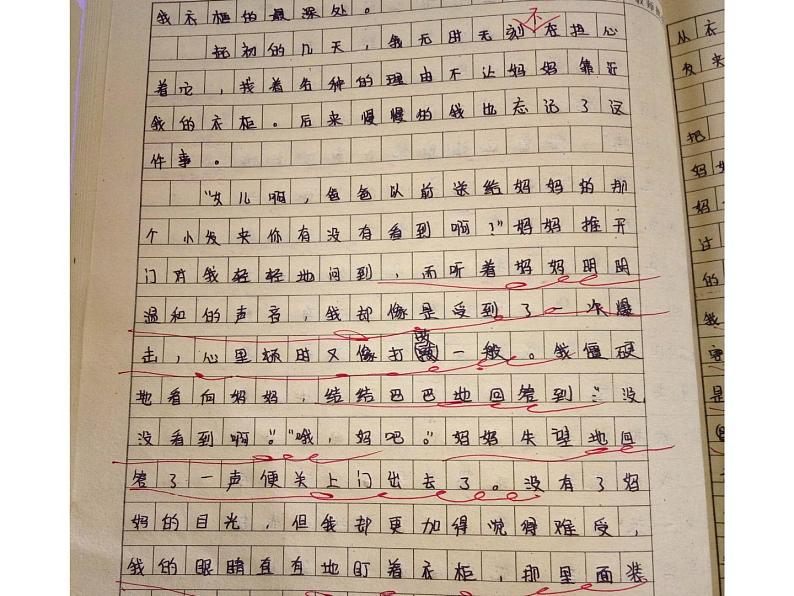 我衣柜的最深处。
起初的几天，我无时无刻不在担心
着它，找着各种的理由不让妈妈靠近
我的衣柜。后来慢慢的我也忘记了这
件事。
“女儿啊，爸爸以前送给妈妈的那
个小发夹你有没有看到啊？”妈妈推开
门对我轻轻地问到，而听着妈妈明明
温和的声音，我却像是受到了一次爆
击，心里顿时又像打鼓一般。我僵硬
地看向妈妈，结结巴巴地回答到：“没
没看到啊。”“哦，妈吧。”妈妈失望地回
答了一声便关上门出去了。没有了妈
妈的目光，但我却更加得觉得难受，
我的眼睛直直地盯着衣柜，那里面装
从衣
发夹
把
妈妈
妈
过
的
我
是